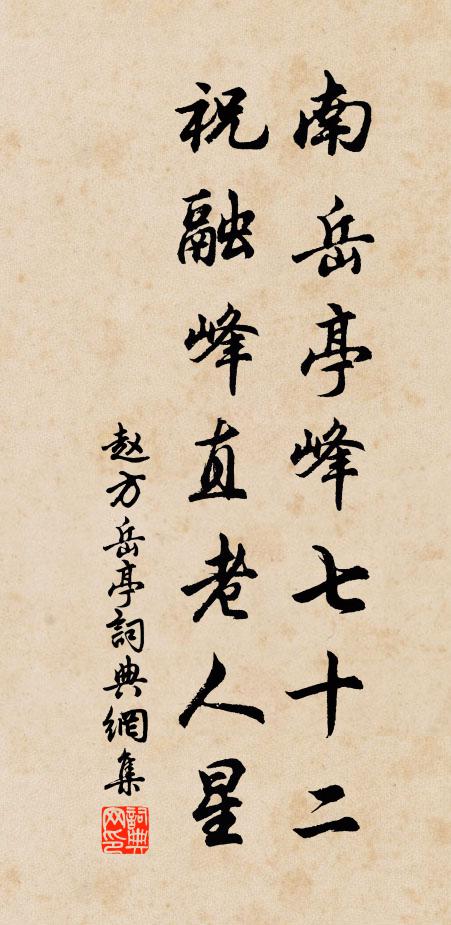 南岳亭峰七十二
祝融峰直老人星
赵方岳亭詞典網集
詞典网印